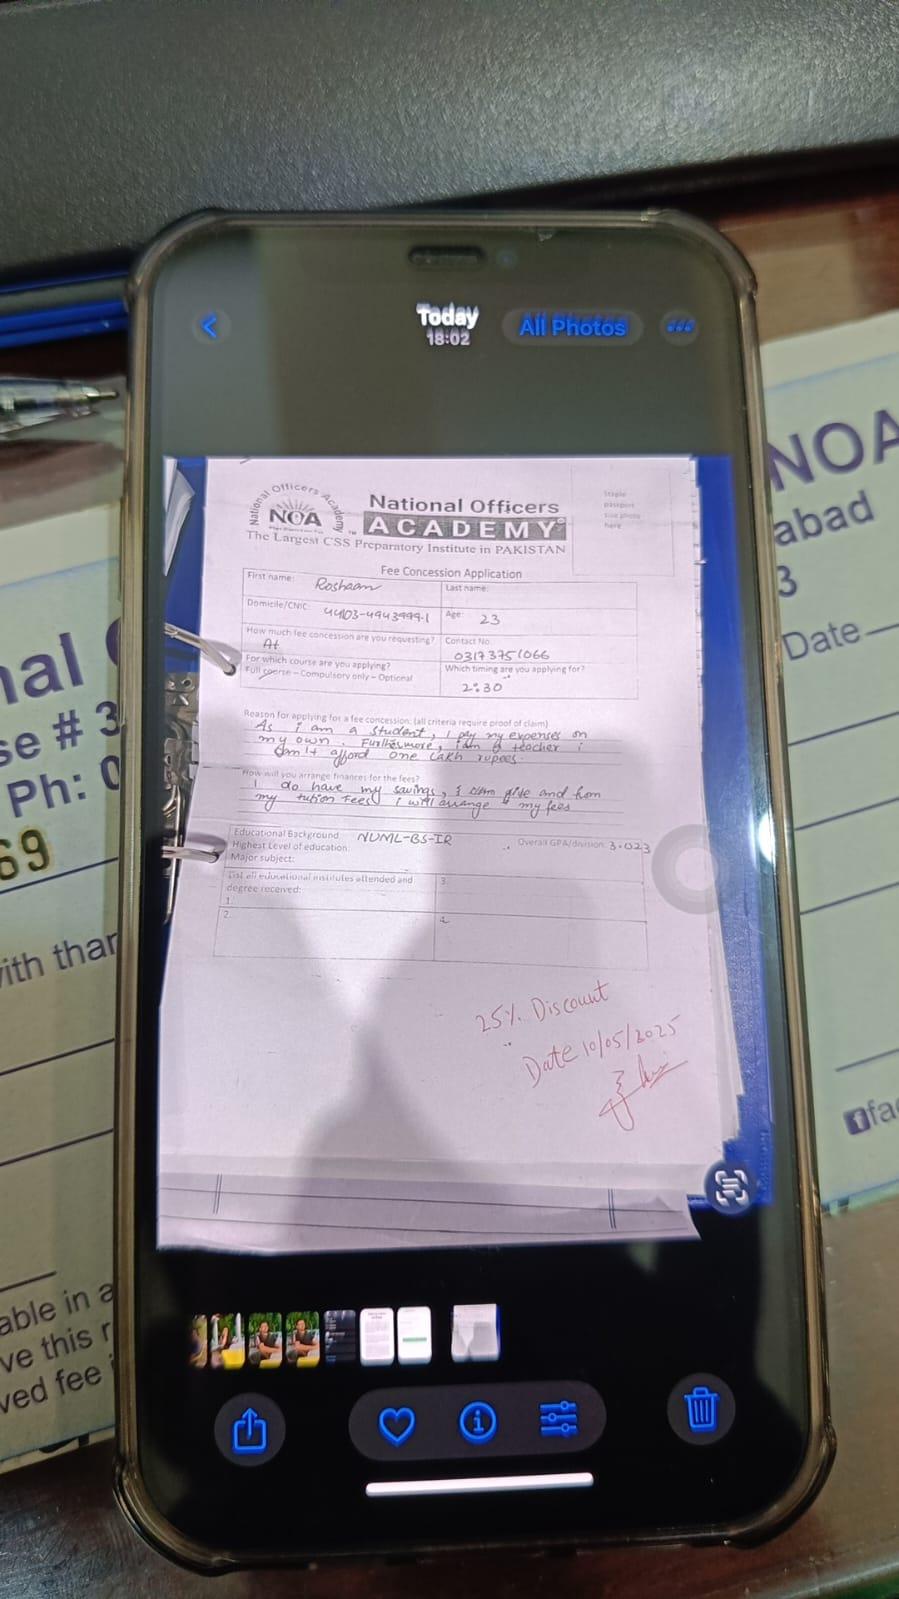 Today
18:02
All Photos
National Officers Academy
NOA
National Officers
ACADEMY
The Largest CSS Preparatory Institute in PAKISTAN
Staple
passport
size photo
here
Fee Concession Application
First name: Roshaan
Last name:
Domicile/CNIC:
Age: 23
How much fee concession are you requesting?
At
Contact No. 03173751066
For which course are you applying?
Full course – Compulsory only – Optional
Which timing are you applying for?
2:30
Reason for applying for a fee concession: (all criteria require proof of claim)
As i am a student, i pay my expenses on
my own. Furthermore, i am a teacher i
can't afford one lakh rupees.
How will you arrange finances for the fees?
I do have my savings, i can give and from
my tution fees i will arrange my fees
Educational Background
NUML-BS-IR
Highest Level of education:
Overall GPA/division: 3.023
Major subject:
List all educational institutes attended and
degree received:
1.
2.
3.
4.
25% Discount
Date 10/05/2025
NOA
abad
3
Date
nal
se # 3
Ph: 0
69
with than
able in a
ve this r
ved fee
fa